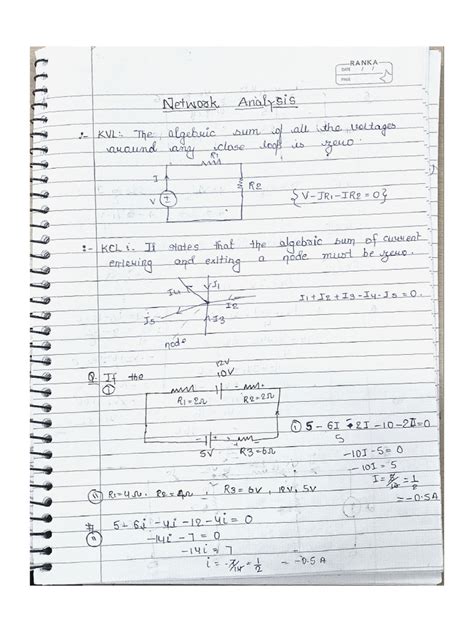 RANKA
DATE / /
PAGE
Network Analysis
:- KVL: The algebric sum of all the voltages
around any close loop is zero.
R1
I
R2
V
I
{V-IR1-IR2=0}
:- KCL: It states that the algebric sum of current
entering and exiting a node must be zero.
I4
I1
I2
I5
I3
node
I1+I2+I3-I4-I5=0.
Q. If the
①
12V
10V
R1=2Ω
R2=2Ω
5V
R3=6Ω
① 5-6I-2I-10-2I=0
5
-10I-5=0
-10I=5
=-0.5A
⑪ R1=4Ω. R2=4Ω, R3=6V, 12V, 5V
5-6i-4i-12-4i=0
-14i-7=0
-14i=7
i=-7/14=-1/2 =-0.5A